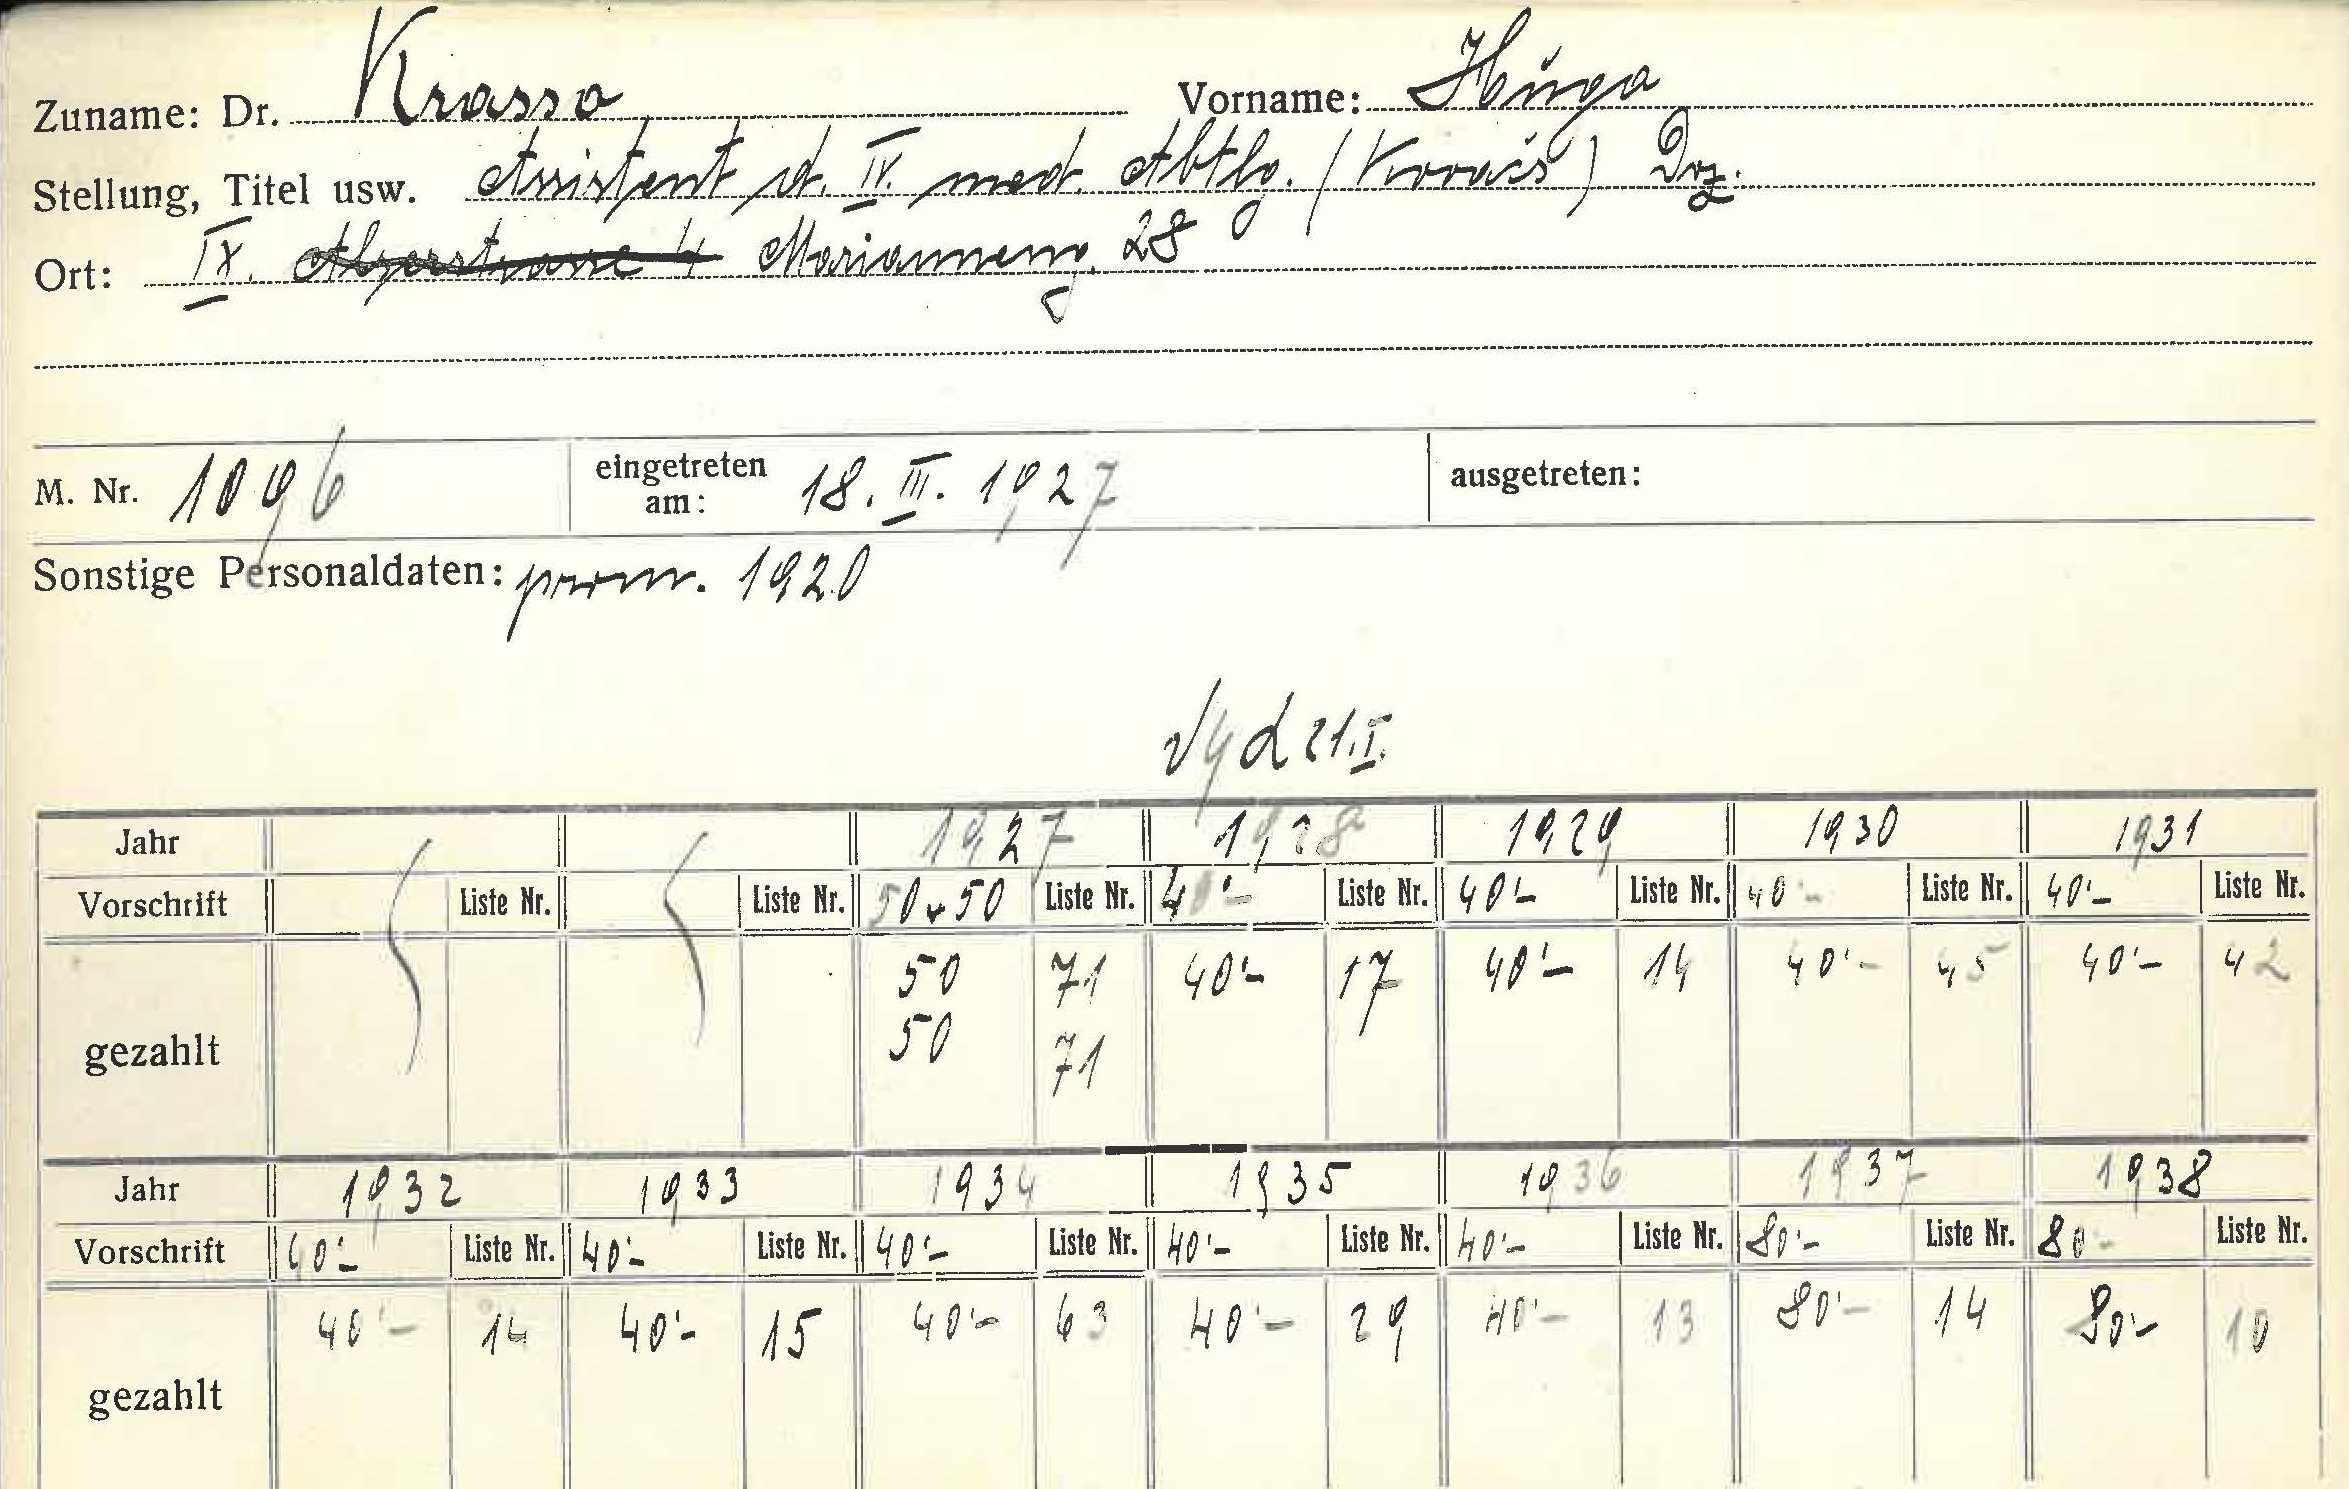 Zuname: Dr. Krasso Vorname: Hugo
Stellung, Titel usw. Assistent d. IV. med. Abtlg. (Kovács) Doz.
Ort: IX. Alserstrasse 4 Marianneng. 28
M. Nr. 1096 eingetreten am: 18. III. 1927 ausgetreten:
Sonstige Personaldaten: prom. 1920
21. I.
Jahr 1927 1928 1929 1930 1931
Vorschrift Liste Nr. Liste Nr. 50+50 Liste Nr. 40'- Liste Nr. 40'- Liste Nr. 40'- Liste Nr. 40'- Liste Nr.
gezahlt 50 71 40'- 17 40'- 14 40'- 45 40'- 42
50 71
Jahr 1932 1933 1934 1935 1936 1937 1938
Vorschrift 40'- Liste Nr. 40'- Liste Nr. 40'- Liste Nr. 40'- Liste Nr. 40'- Liste Nr. 80'- Liste Nr. 80- Liste Nr.
gezahlt 40'- 14 40'- 15 40'- 63 40'- 29 40'- 13 80'- 14 80'- 10